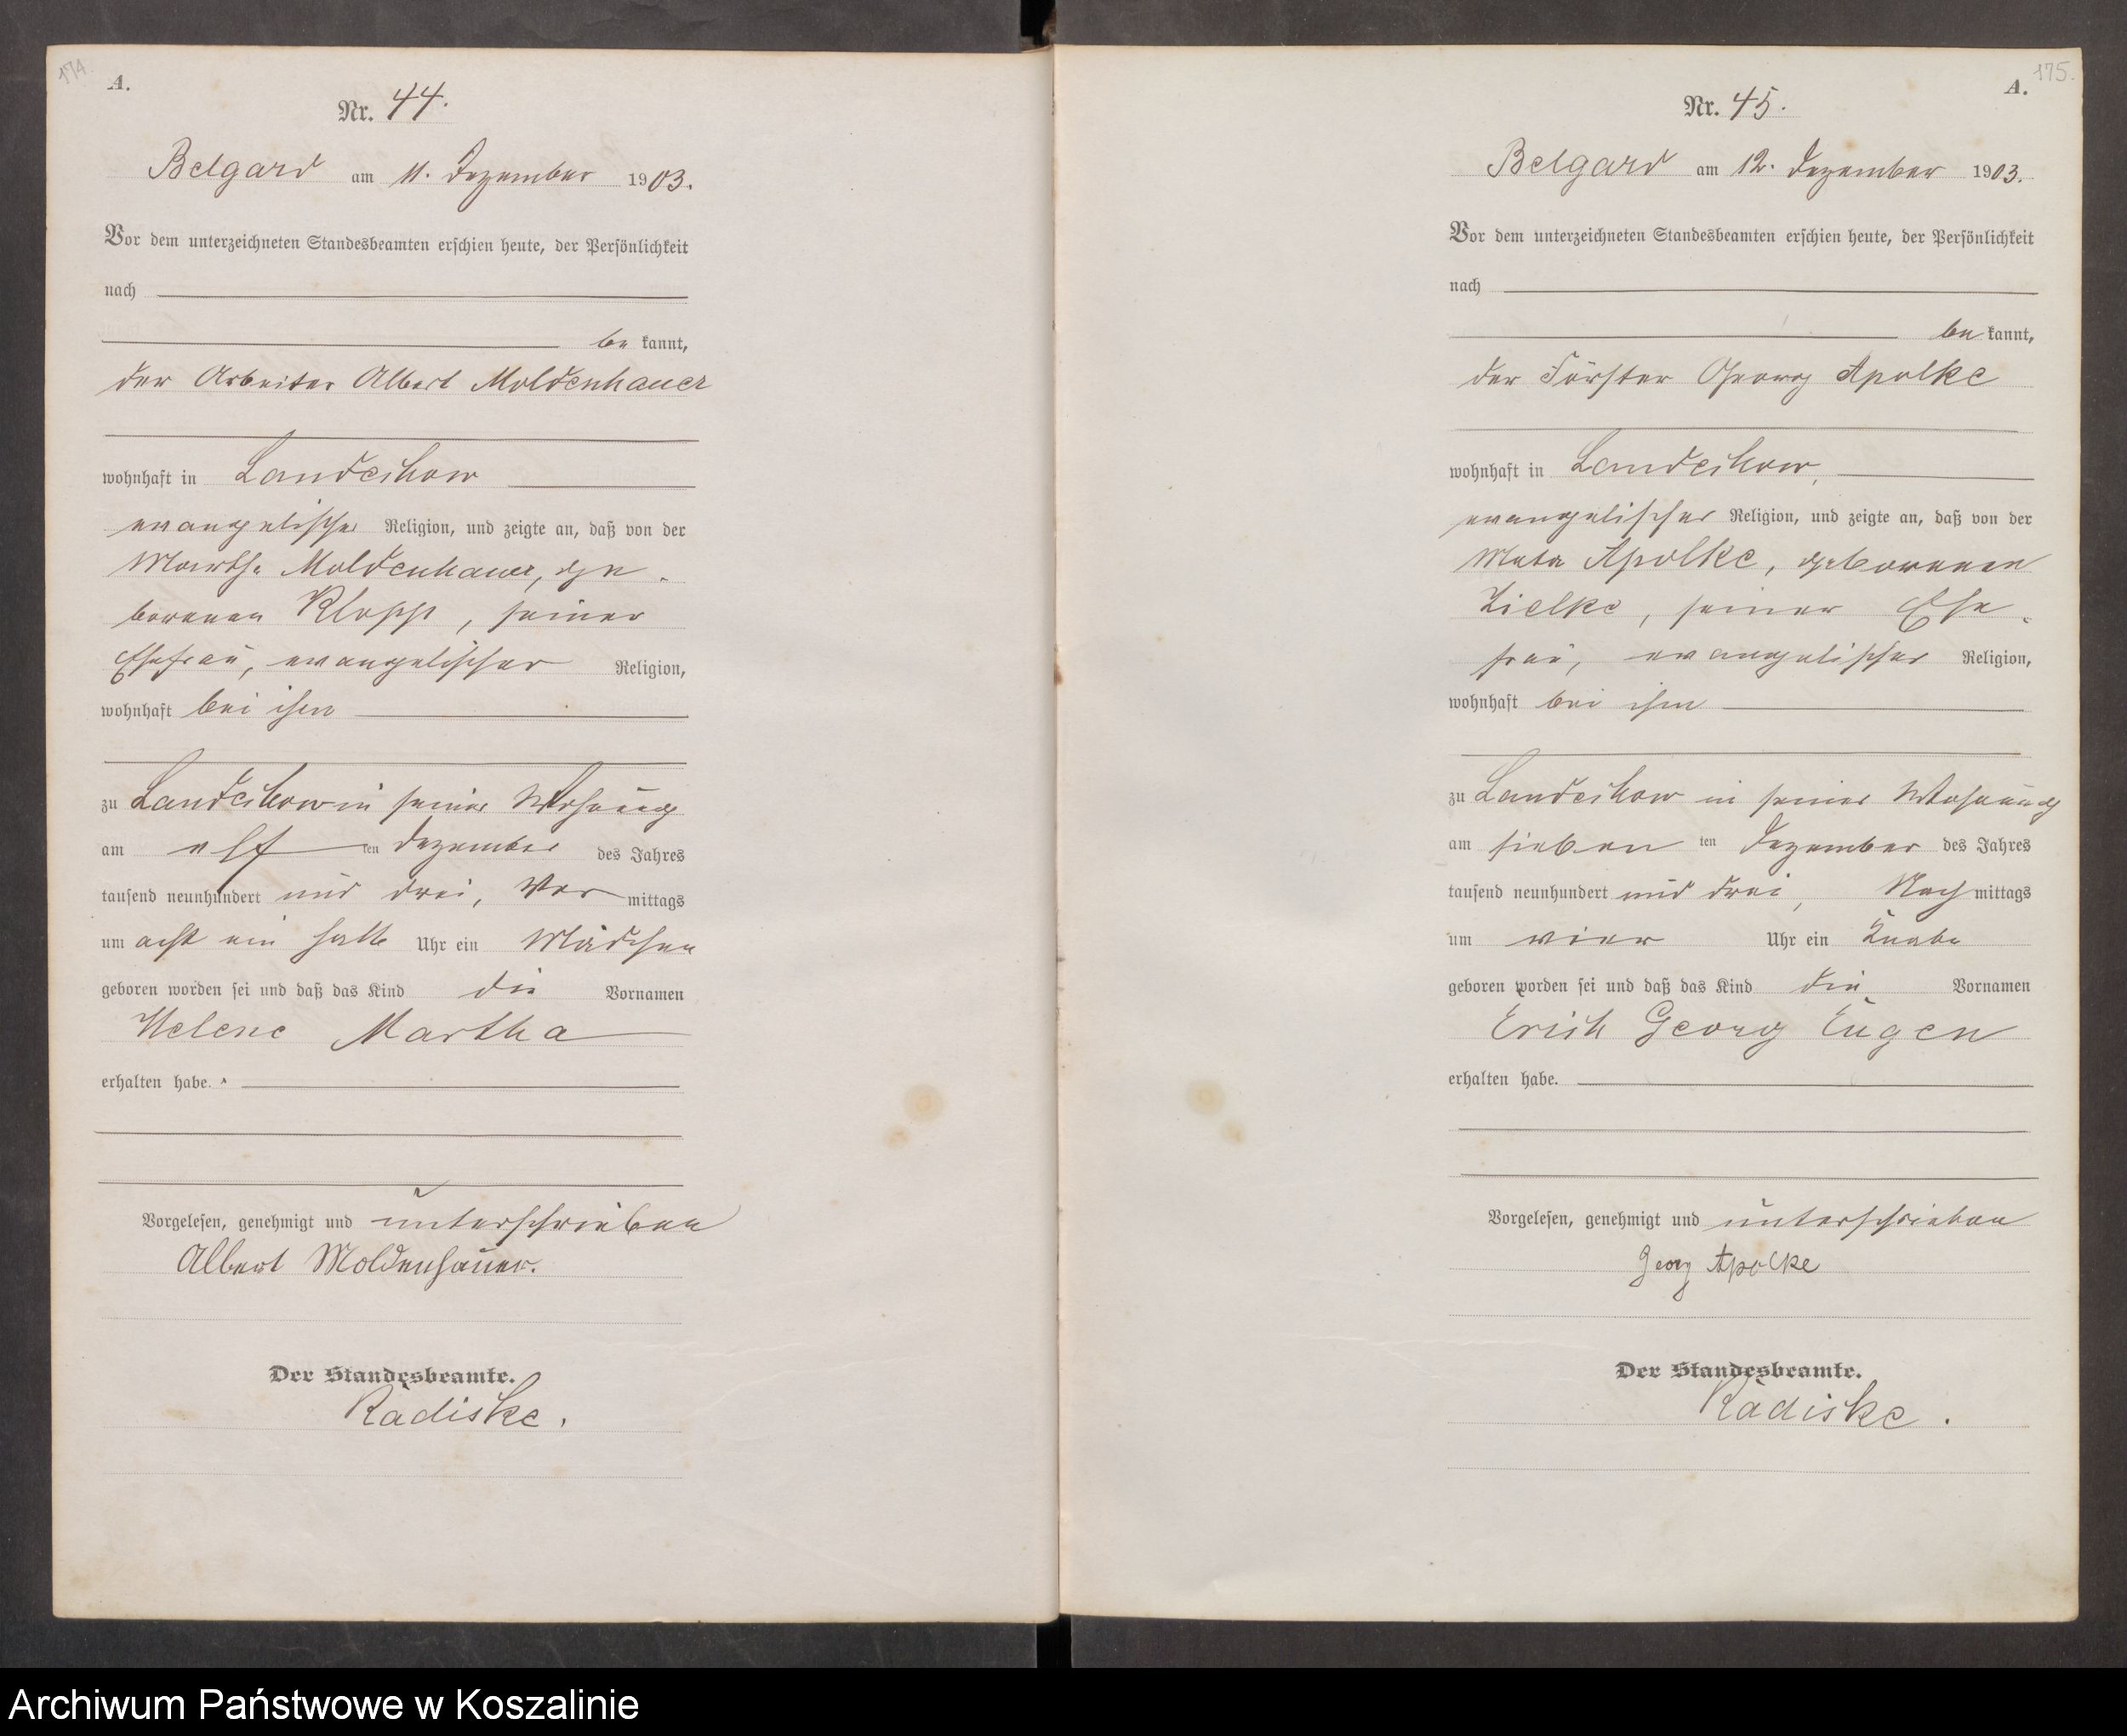 174.
A.
Nr. 44.
Belgard am 11. Dezember 1903.
Vor dem unterzeichneten Standesbeamten erschien heute, der Persönlichkeit
nach
be kannt,
der Arbeiter Albert Moldenhauer
wohnhaft in Landechow
evangelischer Religion, und zeigte an, daß von der
Martha Moldenhauer, ge-
borenen Klopp, seiner
Ehefrau, evangelischer Religion,
wohnhaft bei ihm
zu Landechow in seiner Wohnung
am elf ten Dezember des Jahres
tausend neunhundert und drei, Vor mittags
um acht ein halb Uhr ein Mädchen
geboren worden sei und daß das Kind die Vornamen
Helene Martha
erhalten habe.
Vorgelesen, genehmigt und unterschrieben
Albert Moldenhauer.
Der Standesbeamte.
Radiske.
175.
A.
Nr. 45.
Belgard am 12. Dezember 1903.
Vor dem unterzeichneten Standesbeamten erschien heute, der Persönlichkeit
nach
be kannt,
der Förster Georg Apolke
wohnhaft in Landechow,
evangelischer Religion, und zeigte an, daß von der
Meta Apolke, geborenen
Zielke, seiner Ehe-
frau, evangelischer Religion,
wohnhaft bei ihm
zu Landechow in seiner Wohnung
am sieben ten Dezember des Jahres
tausend neunhundert und drei, Nach mittags
um vier Uhr ein Knabe
geboren worden sei und daß das Kind die Vornamen
Erich Georg Eugen
erhalten habe.
Vorgelesen, genehmigt und unterschrieben
Georg Apolke
Der Standesbeamte.
Radiske.
Archiwum Państwowe w Koszalinie